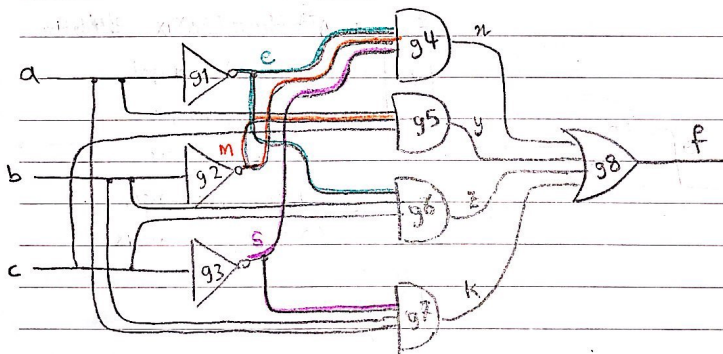 a
b
c
g1
g2
g3
e
m
s
g4
g5
g6
g7
x
y
z
k
g8
f